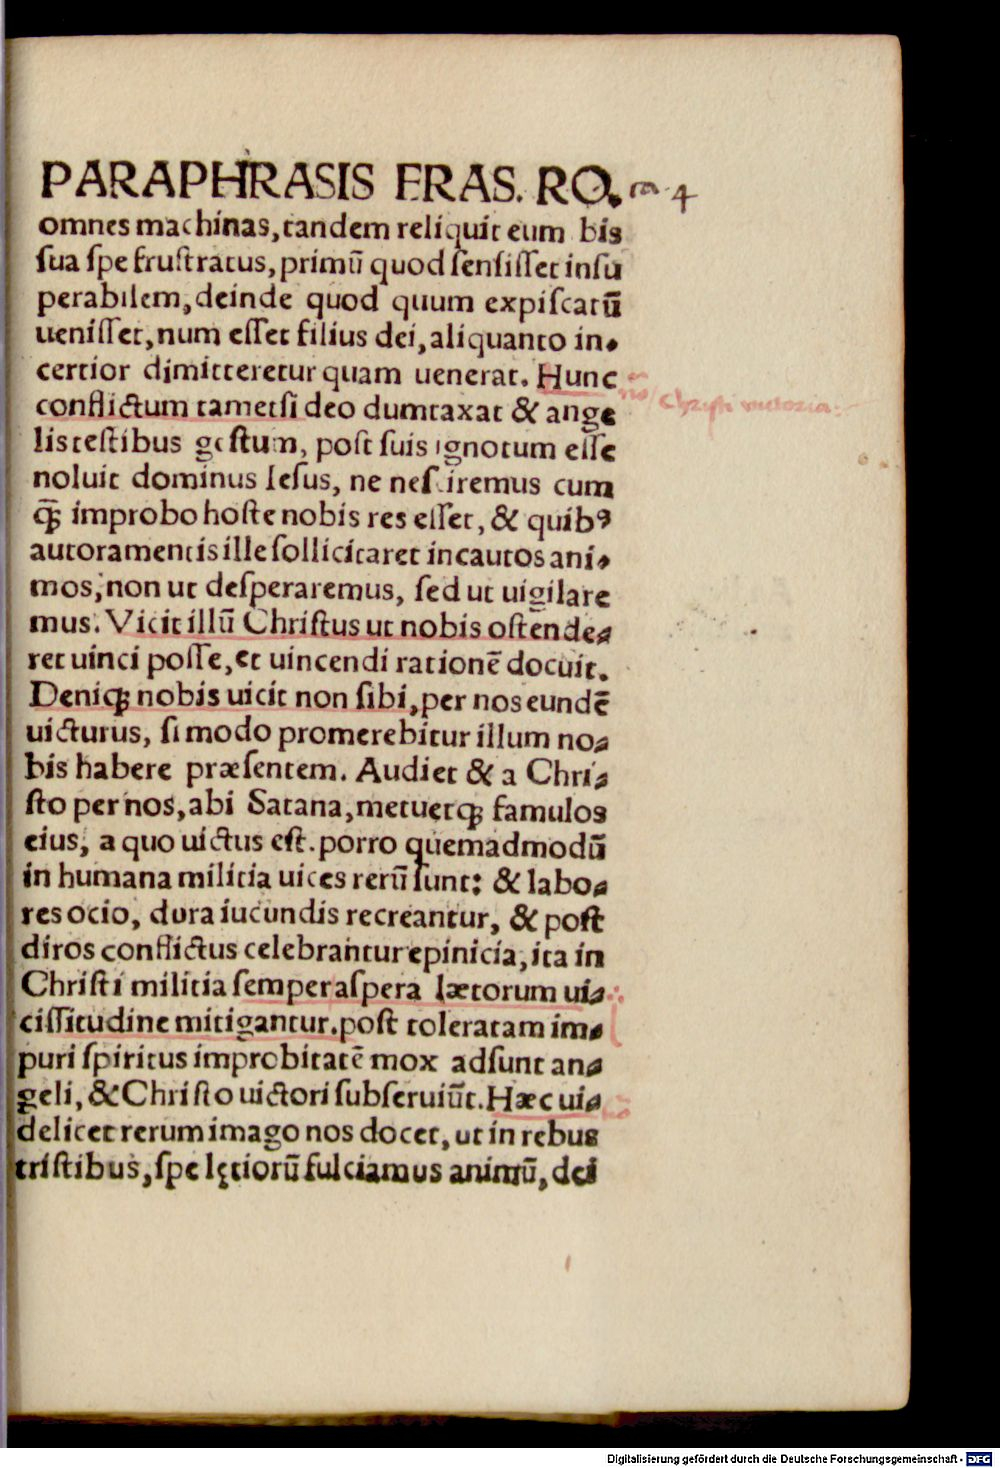 PARAPHRASIS ERAS. RO. ca 4
omnes machinas, tandem reliquit eum bis
sua spe frustratus, primū quod sensisset insu
perabilem, deinde quod quum expiscatū
uenisset, num esset filius dei, aliquanto in-
certior dimitteretur quam uenerat. Hunc
Christi uictoria
conflictum tametsi deo dumtaxat & ange
lis testibus gestum, post suis ignotum esse
noluit dominus Iesus, ne nesciremus cum
ꝙ̃ improbo hoste nobis res esset, & quibꝰ
autoramentis ille sollicitaret incautos ani-
mos, non ut desperaremus, sed ut uigilare
mus. Vicit illū Christus ut nobis ostende-
ret uinci posse, et uincendi rationē docuit.
Deniqꝫ nobis uicit non sibi, per nos eundē
uicturus, si modo promerebitur illum no-
bis habere præsentem. Audiet & a Chri-
sto per nos, abi Satana, metuetqꝫ famulos
eius, a quo uictus est. porro quemadmodū
in humana militia uices rerū sunt: & labo-
res ocio, dura iucundis recreantur, & post
diros conflictus celebrantur epinicia, ita in
Christi militia semper aspera lætorum ui-
cissitudine mitigantur. post toleratam im-
puri spiritus improbitatē mox adsunt an-
geli, & Christo uictori subseruiūt. Hæc ui-
delicet rerum imago nos docet, ut in rebus
tristibus, spe lętiorū fulciamus animū, dei
Digitalisierung gefördert durch die Deutsche Forschungsgemeinschaft - DFG